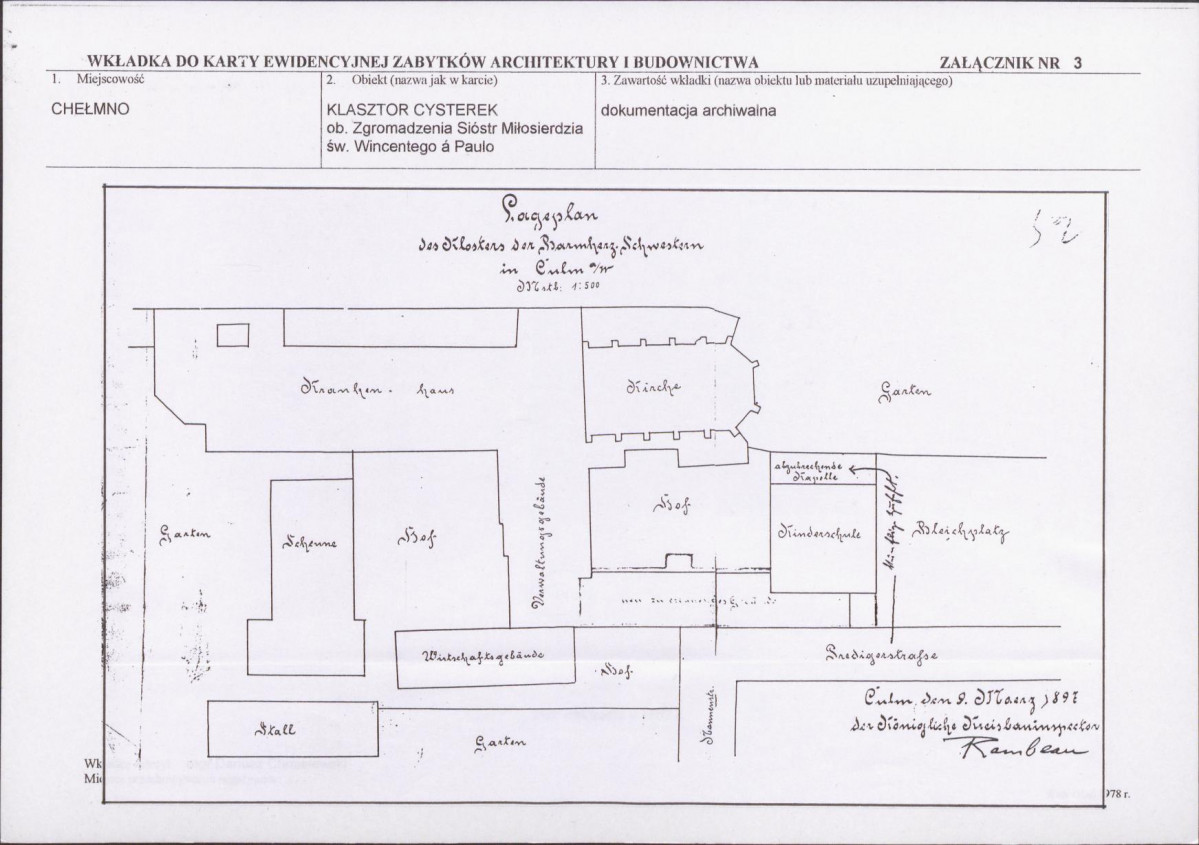 WKŁADKA DO KARTY EWIDENCYJNEJ ZABYTKÓW ARCHITEKTURY I BUDOWNICTWA
ZAŁĄCZNIK NR 3
1. Miejscowość
CHEŁMNO
2. Obiekt (nazwa jak w karcie)
KLASZTOR CYSTEREK
ob. Zgromadzenia Sióstr Miłosierdzia
św. Wincentego á Paulo
3. Zawartość wkładki (nazwa obiektu lub materiału uzupełniającego)
dokumentacja archiwalna
Lageplan
des Klosters der Barmherz. Schwestern
in Culm a/W
Mstb: 1:500
Kranken-haus
Kirche
Garten
abzubrechende
Kapelle
Hof
Garten
Scheune
Hof
Verwaltungsgebäude
Kinderschule
Bleichplatz
neu zu
Wirtschaftsgebäude
Hof
Predigerstraße
Stall
Garten
Nonnenstr.
Culm, den 9. Maerz 1897
der Königliche Kreisbauinspector
Rambeau
Wk
Mie
978 r.